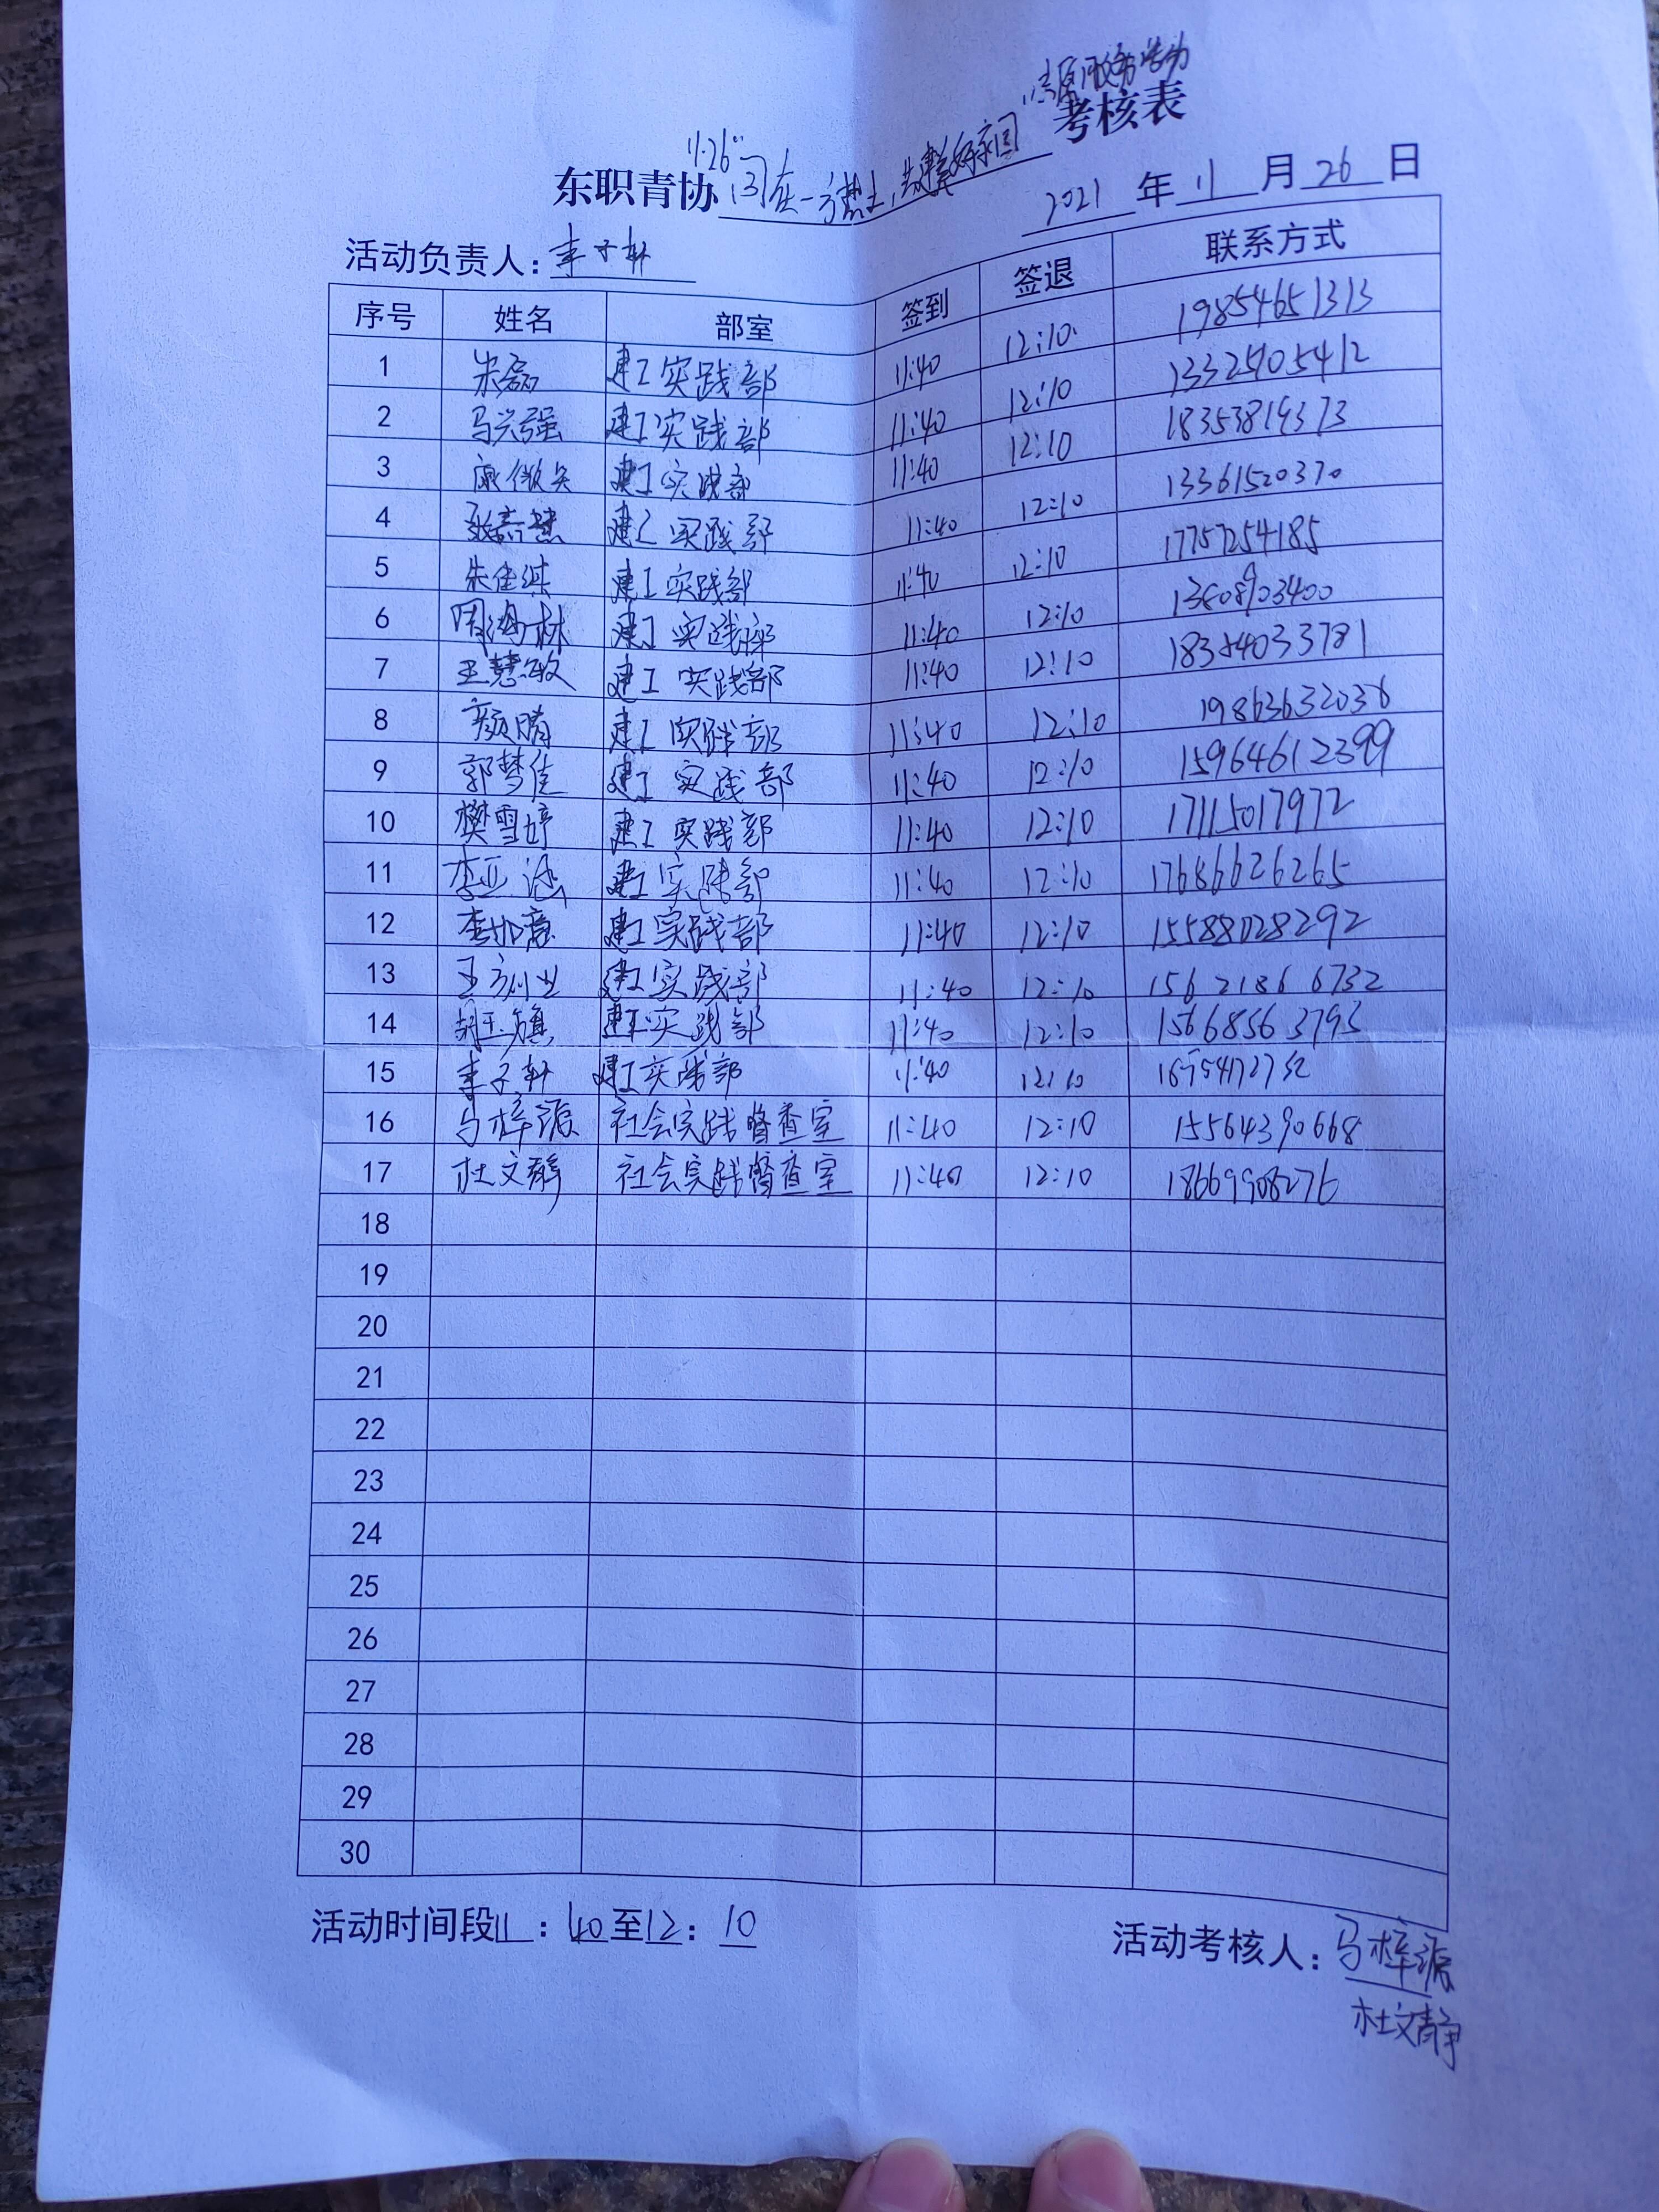 志愿服务活动
11.26"
东职青协 同在一方热土,共建美好家园" 考核表
2021 年 11 月 26 日
活动负责人: 李子轩
序号 姓名 部室 签到 签退 联系方式
1 朱磊 建工实践部 11:40 12:10 19854651313
2 马兴强 建工实践部 11:40 12:10 13325405412
3 建工实践部 11:40 12:10 18353819373
4 建工实践部 11:40 12:10 13361520370
5 朱佳淇 建工实践部 11:40 12:10 17757254185
6 周海林 建工实践部 11:40 12:10
7 王慧敏 建工实践部 11:40 12:10 18354033781
8 颜晴 建工实践部 11:40 12:10 19863632036
9 郭梦佳 建工实践部 11:40 12:10 15964612399
10 樊雪婷 建工实践部 11:40 12:10 17115017972
11 李亚涵 建工实践部 11:40 12:10 17686626265
12 李如意 建工实践部 11:40 12:10 15588028292
13 建工实践部 11:40 12:10 15621866732
14 胡玉旗 建工实践部 11:40 12:10 15668563793
15 李子轩 建工实践部 11:40 12:10
16 马梓源 社会实践督查室 11:40 12:10 15564390668
17 杜文静 社会实践督查室 11:40 12:10 18669908276
18
19
20
21
22
23
24
25
26
27
28
29
30
活动时间段 11 : 40 至 12 : 10 活动考核人: 马梓源
杜文静